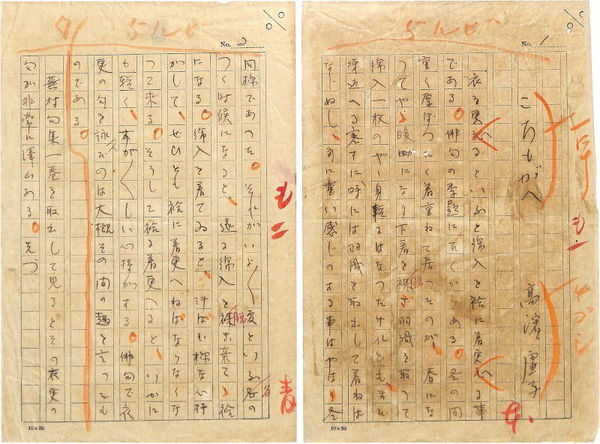 No. 1
5ルビ
ころもがへ
高濱虚子
衣を更へるといふと綿入を袷に着更へる事
である。俳句の季題に古くからある。冬の間
重く厚ぼつたく着重ねて居つたのが、春にな
つてやゝ暖曲になり下着を脱ぎ羽織を取つて
綿入一枚のやゝ身軽るはなつたけれども、まだ
浮辺へる寒さに時には羽織を取出して着ねば
ならぬし、
重い感じのする事はやはり冬
10×20
No. 2
5ルビ
同様であつた。それがいよ〳〵夏といふ
つく時候になると、遂に綿入を脱ぎ棄てゝ袷
になる。綿入を着てゐると
がして、ぜひとも袷に着更へねばならなくな
つて来る。そうして袷に着更へると、いかに
も軽く、すが〳〵しい心持がする。俳句で衣
更の句を詠むのは大概その間の趣を言つたも
のである。
蕪村句集一巻を取出して見るとその衣更の
句が非常に澤山ある。先づ
10×20